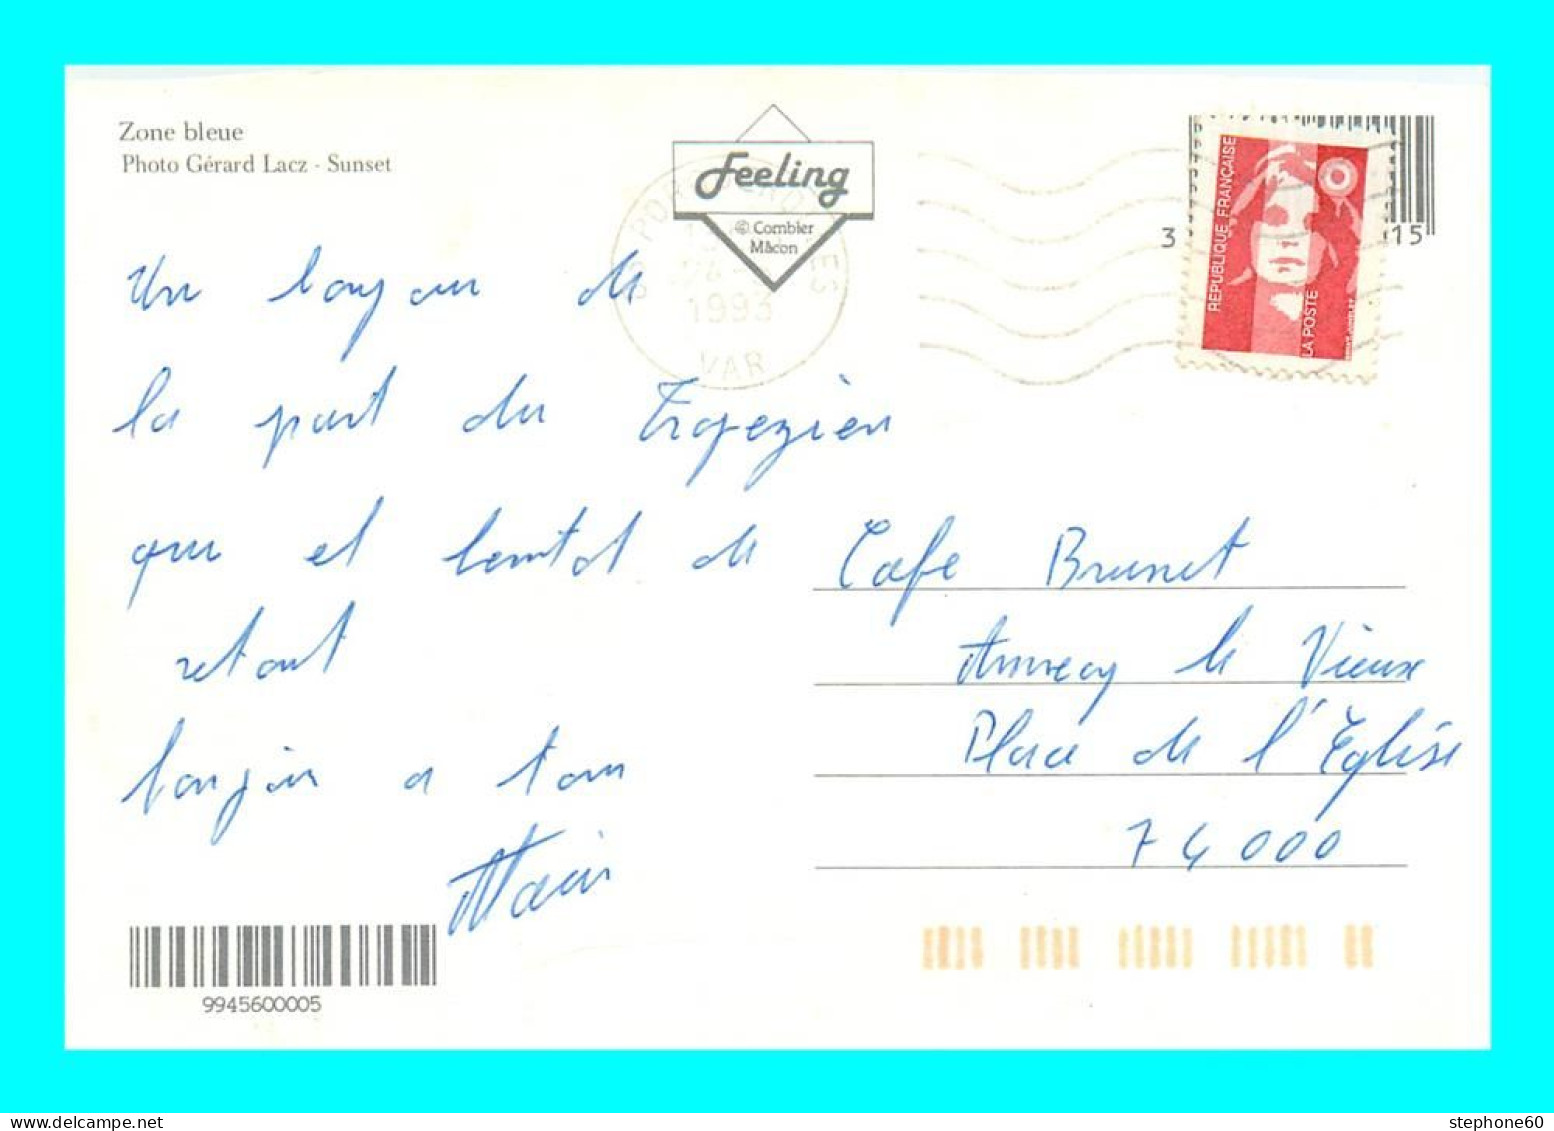 Zone bleue
Photo Gérard Lacz - Sunset
Feeling
© Combier
Mâcon
1993
VAR
REPUBLIQUE FRANÇAISE
LA POSTE
3
15
Un bonjour de
la part du Tropezien
qui et bentot de
retout
bonjour a tous
Alain
Cafe Brunet
Annecy le Vieux
Place de l'Eglise
74000
9945600005
stephone60